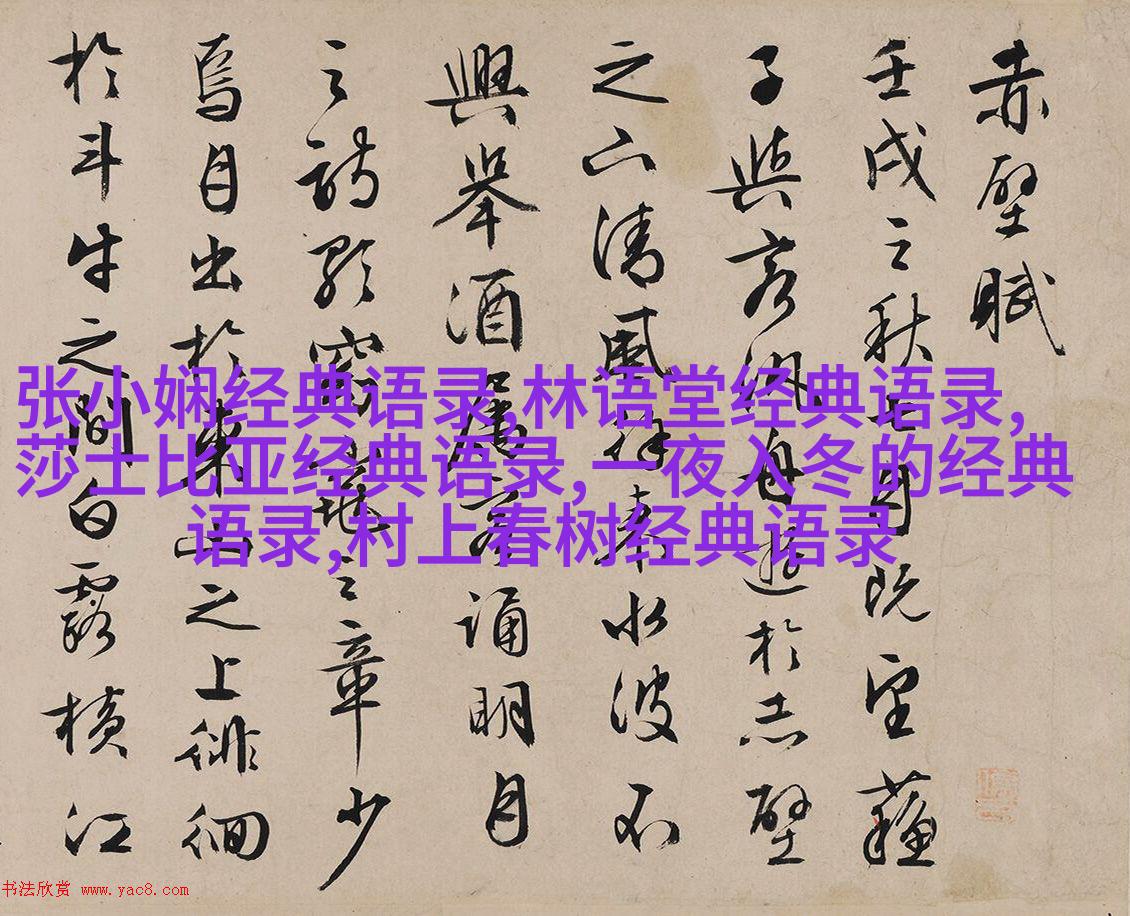 赤壁賦
壬戌之秋七月既望蘇
子與客汎舟遊於赤壁
之下清風徐来水波不
興舉酒屬客誦明月
之詩歌窈窕之章少
焉月出於東山之上徘徊
於斗牛之間白露橫江
张小娴经典语录,林语堂经典语录,
莎士比亚经典语录,一夜入冬的经典
语录,村上春树经典语录
书法欣赏 www.yac8.com